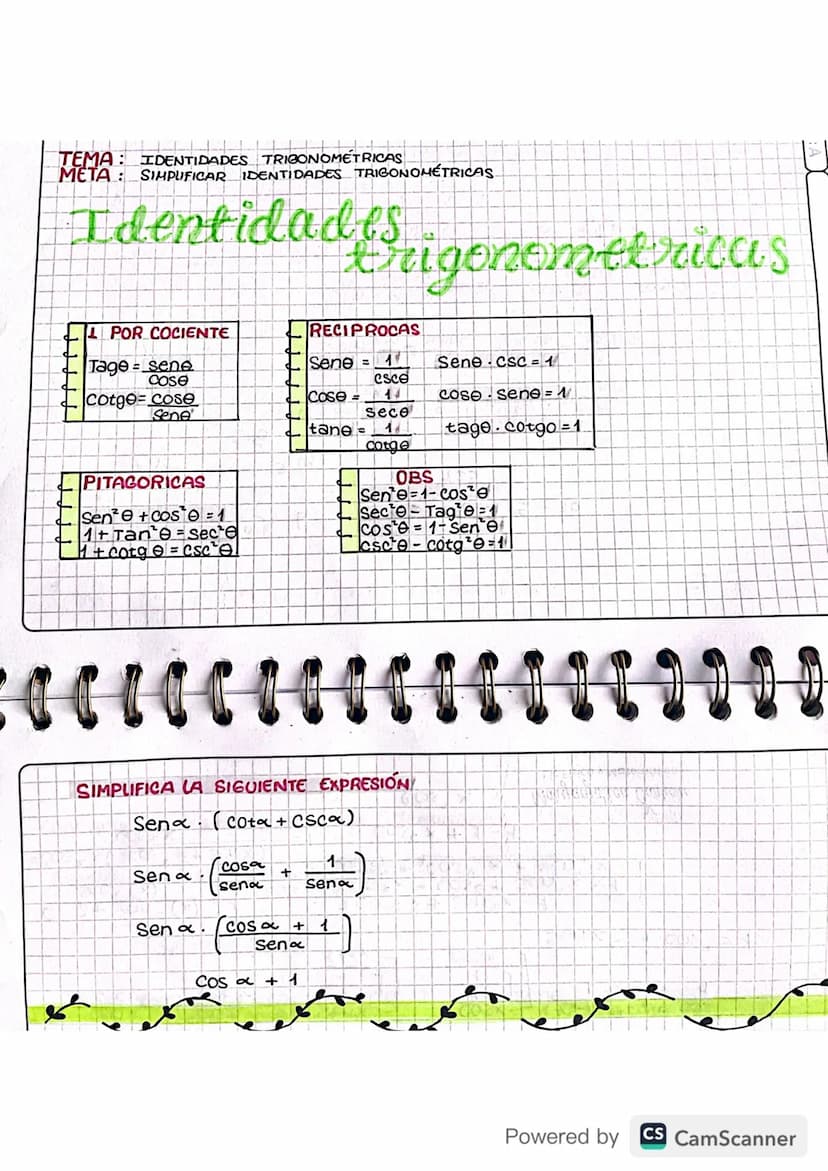 TEMA: IDENTIDADES TRIGONOMÉTRICAS
META: SIMPLIFICAR IDENTIDADES TRIGONOMÉTRICAS
Identidades
trigonometricas
1 POR COCIENTE
Tagθ = senθ
cosθ
cotgθ = cosθ
senθ
RECIPROCAS
Senθ = 1 Senθ · csc = 1
cscθ
Cosθ = 1 cosθ · senθ = 1
secθ
tanθ = 1 tagθ · cotgθ = 1
cotgθ
PITAGORICAS
Sen²θ + cos²θ = 1
1 + Tan²θ = sec²θ
1 + cotg θ = csc²θ
OBS
Sen²θ = 1 - cos²θ
Sec²θ - Tag²θ = 1
cos²θ = 1 - sen²θ
csc²θ - cotg²θ = 1
SIMPLIFICA LA SIGUIENTE EXPRESIÓN
Senα · (cotα + cscα)
Sen α · (cosα/senα + 1/senα)
Sen α · (cos α + 1/senα)
Cos α + 1
Powered by CS CamScanner